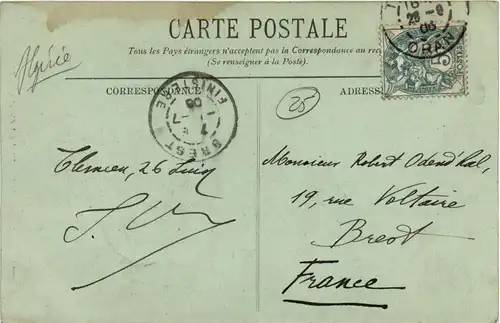 CARTE POSTALE
Tous les Pays étrangers n'acceptent pas la Correspondance au rec
(Se renseigner à la Poste).
Algérie
CORRESPONDANCE
ADRESSE
25
ORAN
BREST
FINISTERE
Tlemcen, 26 Juin
Monsieur Robert Odend'hal,
19, rue Voltaire
Brest
France